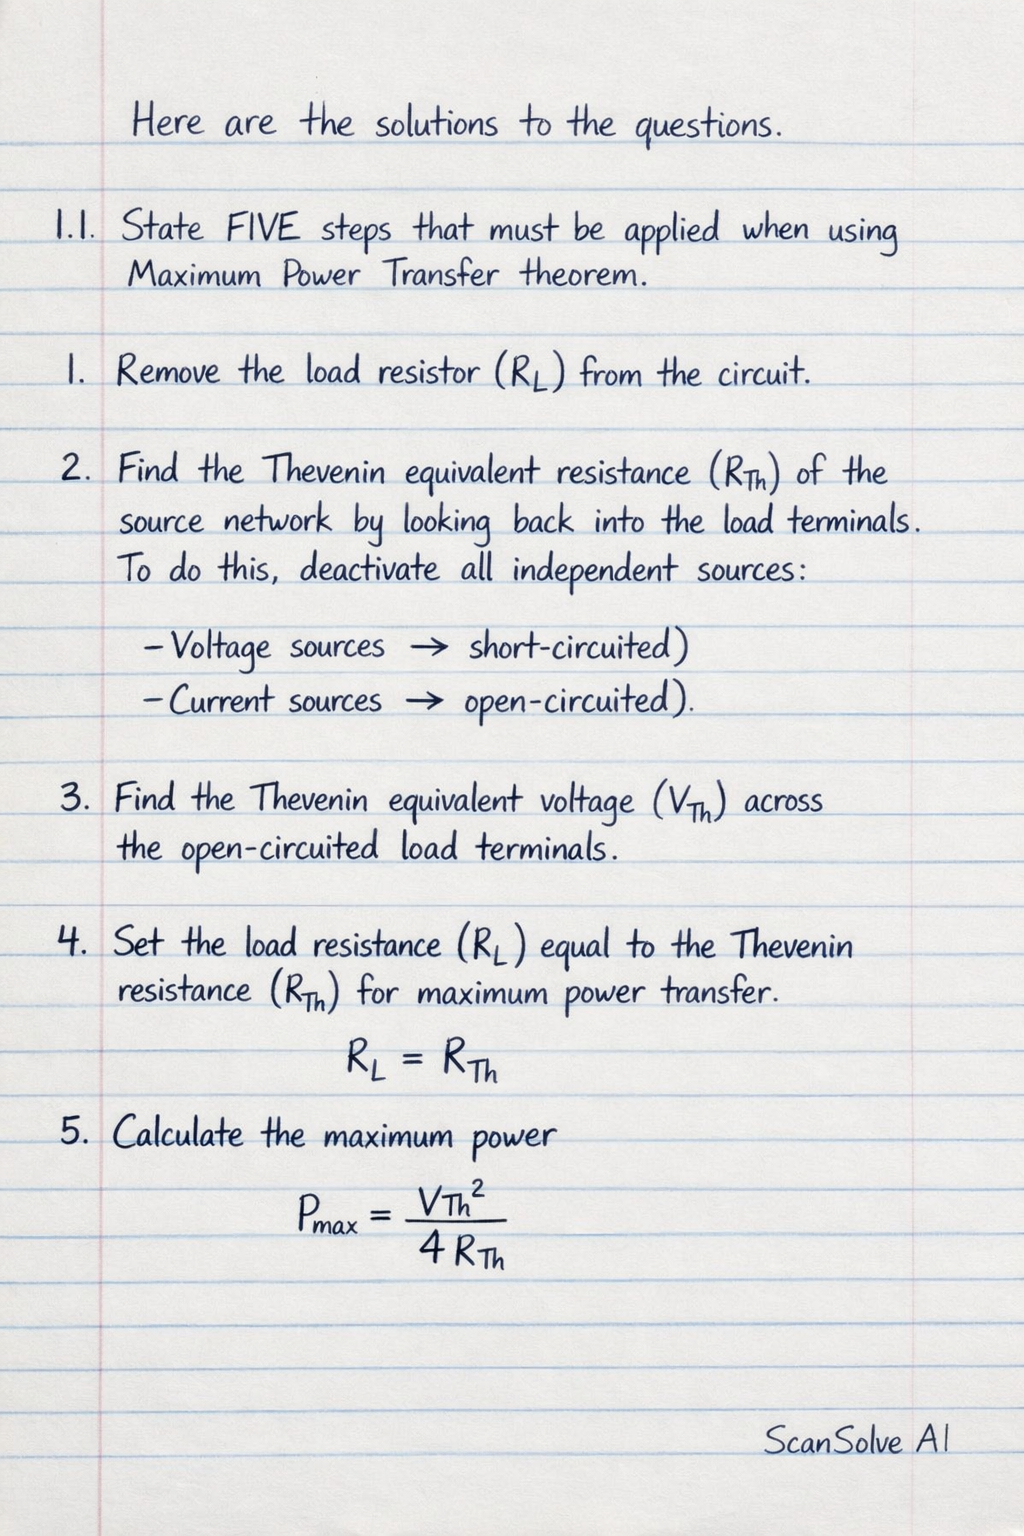 Here are the solutions to the questions.
1.1. State FIVE steps that must be applied when using
Maximum Power Transfer theorem.
1. Remove the load resistor (R_L) from the circuit.
2. Find the Thevenin equivalent resistance (R_Th) of the
source network by looking back into the load terminals.
To do this, deactivate all independent sources:
- Voltage sources → short-circuited)
- Current sources → open-circuited).
3. Find the Thevenin equivalent voltage (V_Th) across
the open-circuited load terminals.
4. Set the load resistance (R_L) equal to the Thevenin
resistance (R_Th) for maximum power transfer.
R_L = R_Th
5. Calculate the maximum power
P_max = V_Th² / 4 R_Th
ScanSolve AI